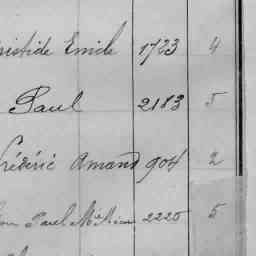 Aristide Emile 1723 4
Paul 2183 5
Frédéric Amand 904 2
Paul 2220 5